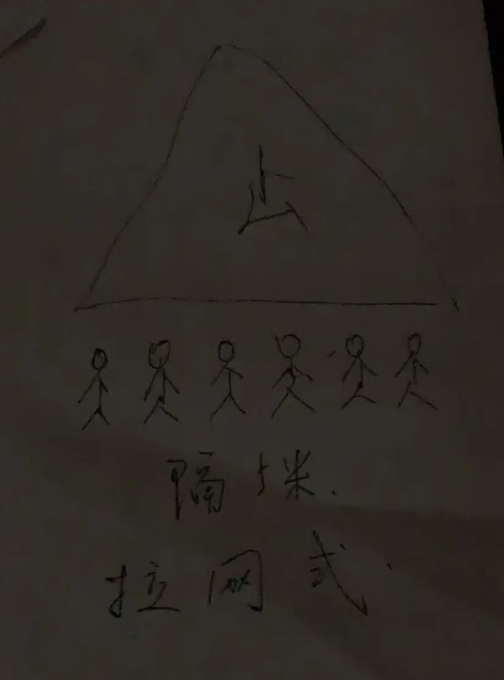 山
隔5米.
拉网式.